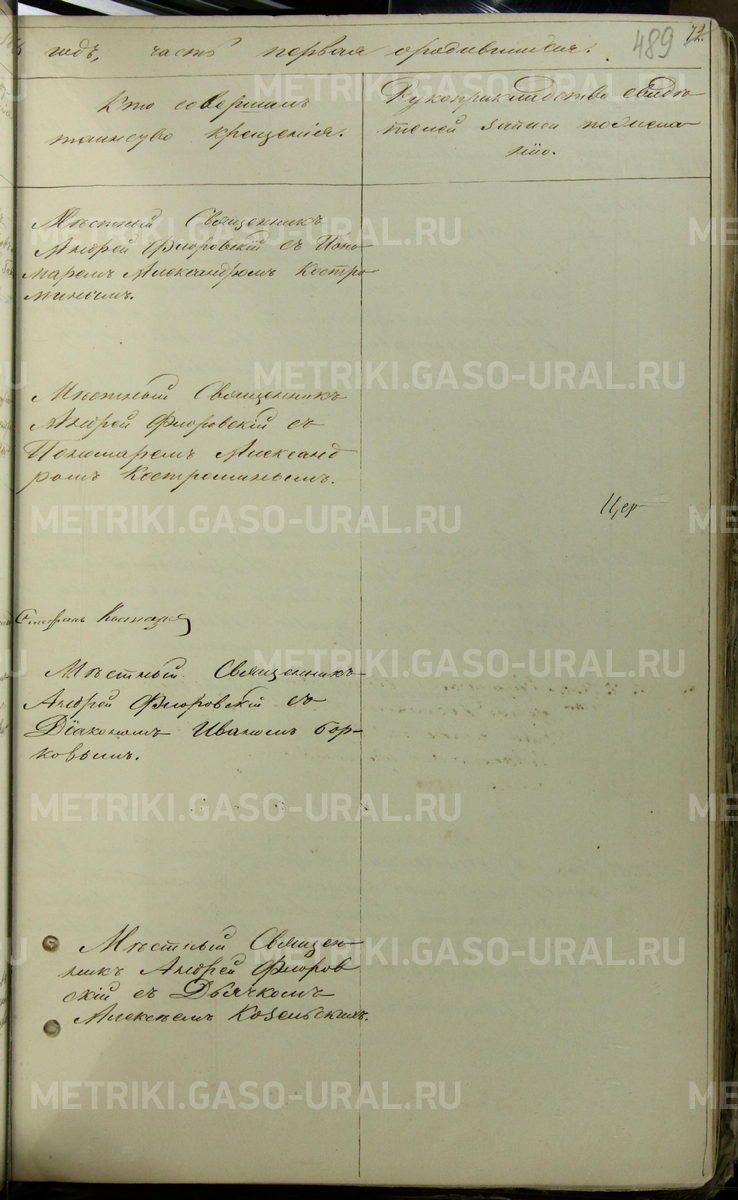 годъ, часть первая о родившихся.
489
72.
Кто совершалъ
таинство крещенія.
Рукоприкладство свидѣ-
телей записи по желa-
нію.
Мѣстный Священникъ
Андрей Флоровскій съ Поно-
маремъ Александромъ Костро-
минымъ.
Мѣстный Священникъ
Андрей Флоровскій съ
Пономаремъ Александ
ромъ Костроминымъ.
Цер-
Мѣстный Священникъ
Андрей Флоровскій съ
Діакономъ Иваномъ Бор-
ковымъ.
Мѣстный Священ-
никъ Андрей Флоров
скій съ Дьячкомъ
Алексѣемъ Козельскимъ.
METRIKI.GASO-URAL.RU